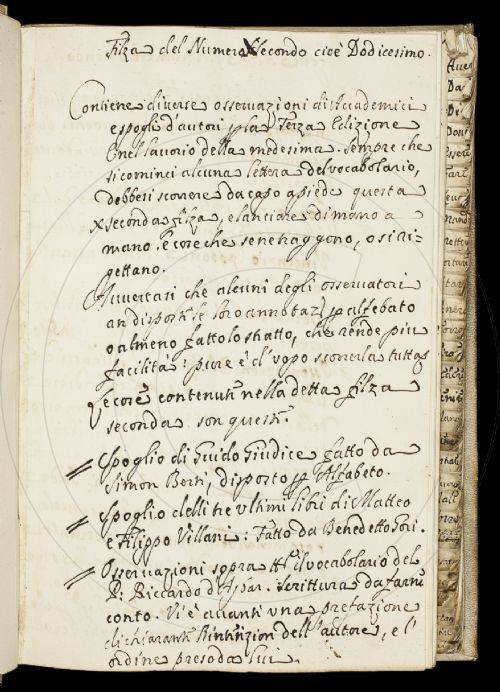 Filza del Numero X secondo cioè Dodicesimo.
Contiene diuerse osseruazioni di Accademici
e spogli d'autori p la Terza Edizione
E nel lauorio della medesima. Sempre che
si cominci alcuna lettera del vocabolario,
debbesi scorrere da capo a piede questa
X seconda filza, e lanciare di mano a
mano. E cose che se ne traggono, o si ri-
gettano.
Auuertasi che alcuni degli osseruatori
an disposti le loro annotaz.i p alfebato
o almeno fatto lo stratto, che rende piu
facilità: pure è d'uopo scorrerla tutta
Le cose contenute nella detta filza
seconda son queste.
Spoglio di Guido Giudice fatto da
Simon Berti, disposto p Alfabeto.
Spoglio delli tre vltimi libri di Matteo
e Filippo Villani: Fatto da Benedetto Gori.
Osseruazioni sopra tt.o il vocabolario del
P: Riccardo d' Scrittura da farne
conto. Vi è auanti vna prefazione
dichiarante l'intenzion dell'autore, e l'
ordine preso da lui.